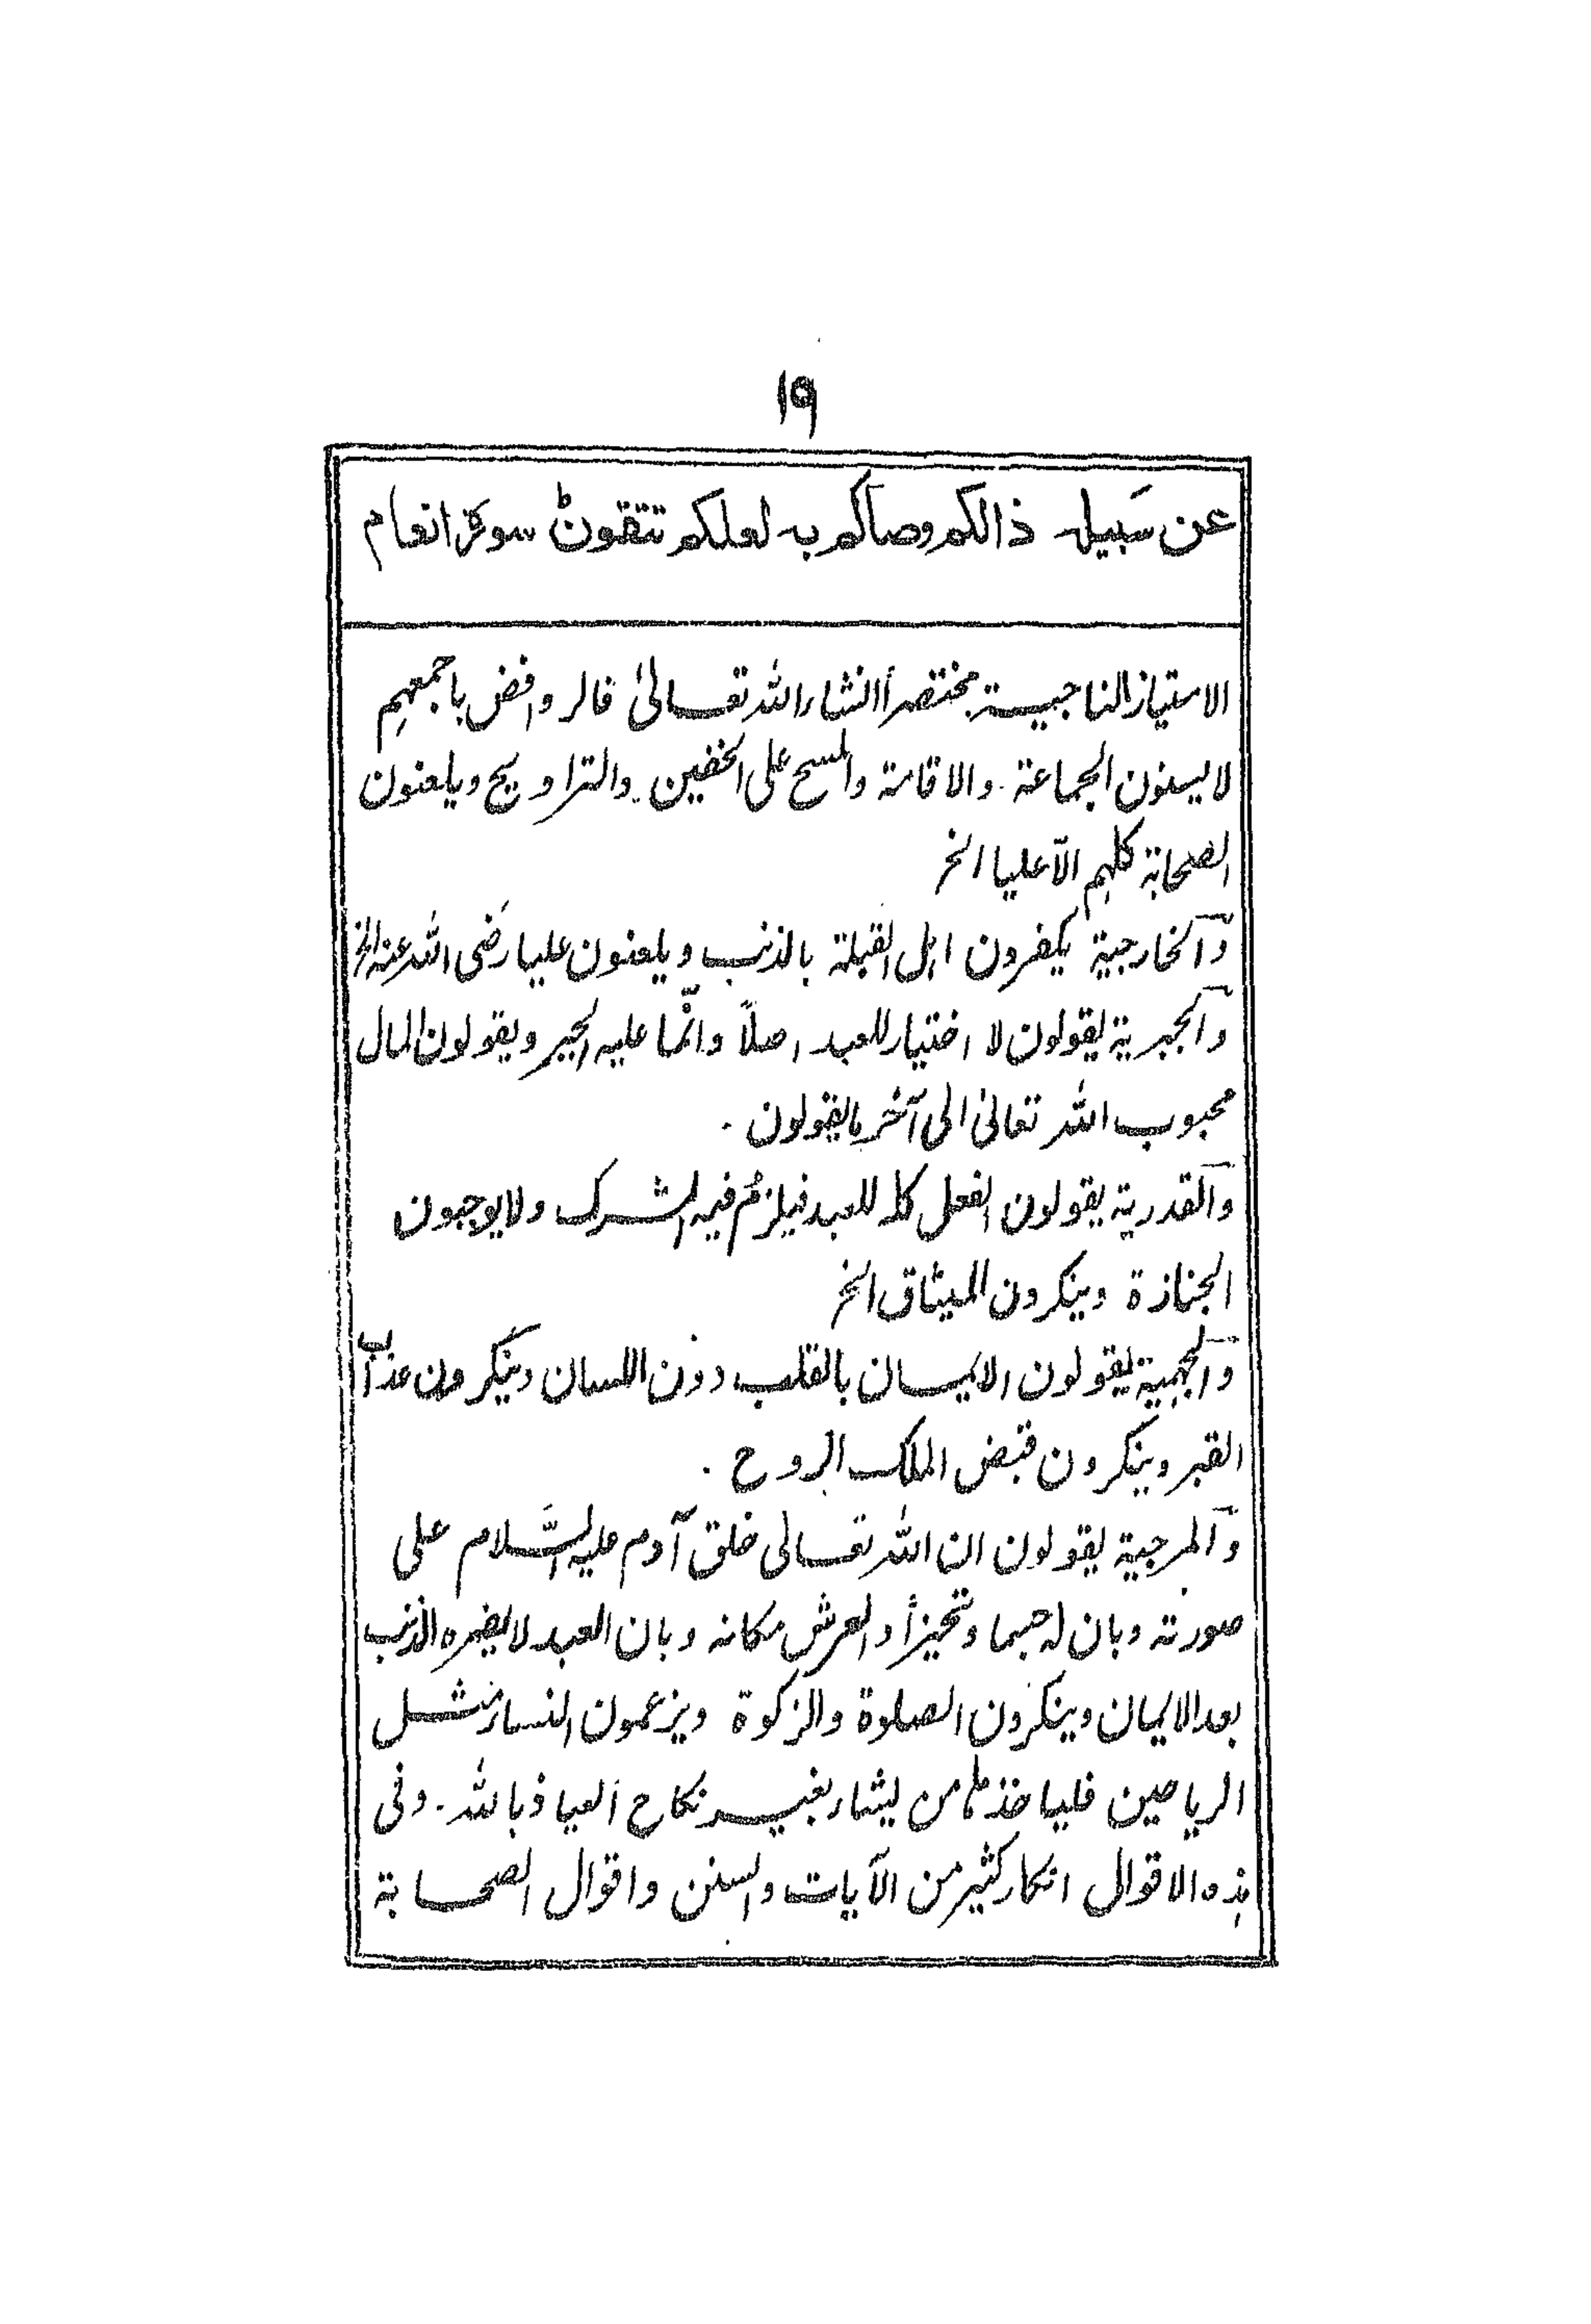 ١٩
عن سَبيله ذالكم وصاكم به لعلكم تتقون سورة انعام
الامتياز الناجيية مختصراً انشاء الله تعالىٰ فالروافض باجمعهم
لايسنون الجماعة. والاقامة والمسح على الخفين. والتراويح ويلعنون
الصحابة كلهم الّا عليا الخ
وَالخارجية يكفرون اهل القبلة بالذنب ويلعنون عليا رضى الله عنه الخ
وَالجبرية يقولون لا اختيار للعبد اصلاً وانّما عليه الجبر ويقولون المال
محبوب الله تعالىٰ الى آخر مايقولون.
وَالقدرية يقولون الفعل كله للعبد فيلزمُ فيه الشرك ولا يوجبون
الجنازة وينكرون الميثاق الخ
وَالجهمية يقولون الايمان بالقلب دون اللسان وينكرون عذاب
القبر وينكرون قبض الملك الروح.
وَالمرجية يقولون ان الله تعالى خلق آدم عليه السَّلام على
صورته وبان له جسما وتحيزاً والعرش مكانه وبان العبد لا يضره الذنب
بعد الايمان وينكرون الصلوة والزكوة ويزعمون النساء مثل
الرياحين فلياخذها من يشاء بغير نكاح العياذ بالله. وفى
هذه الاقوال انكار كثير من الآيات والسنن واقوال الصحابة